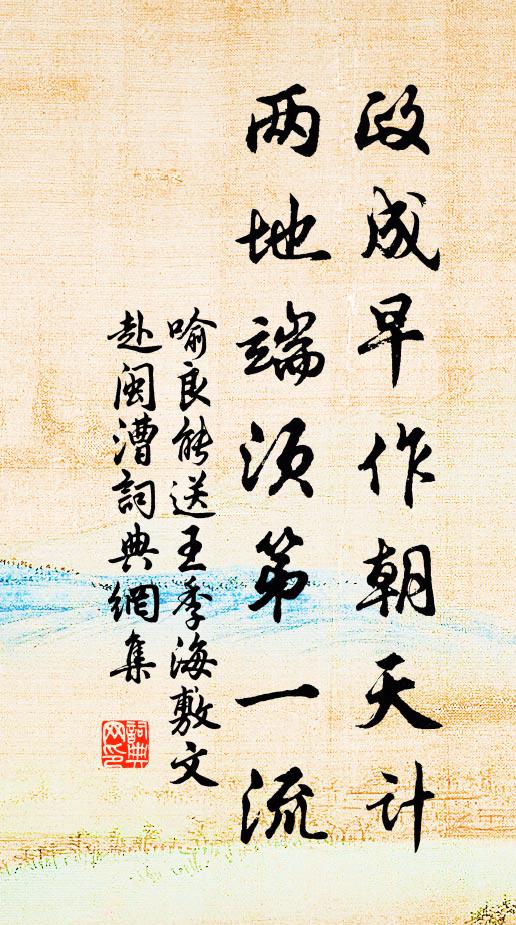 政成早作朝天计
两地端须第一流
喻良能送王季海敷文
赴闽漕词典網集
詞典
网印